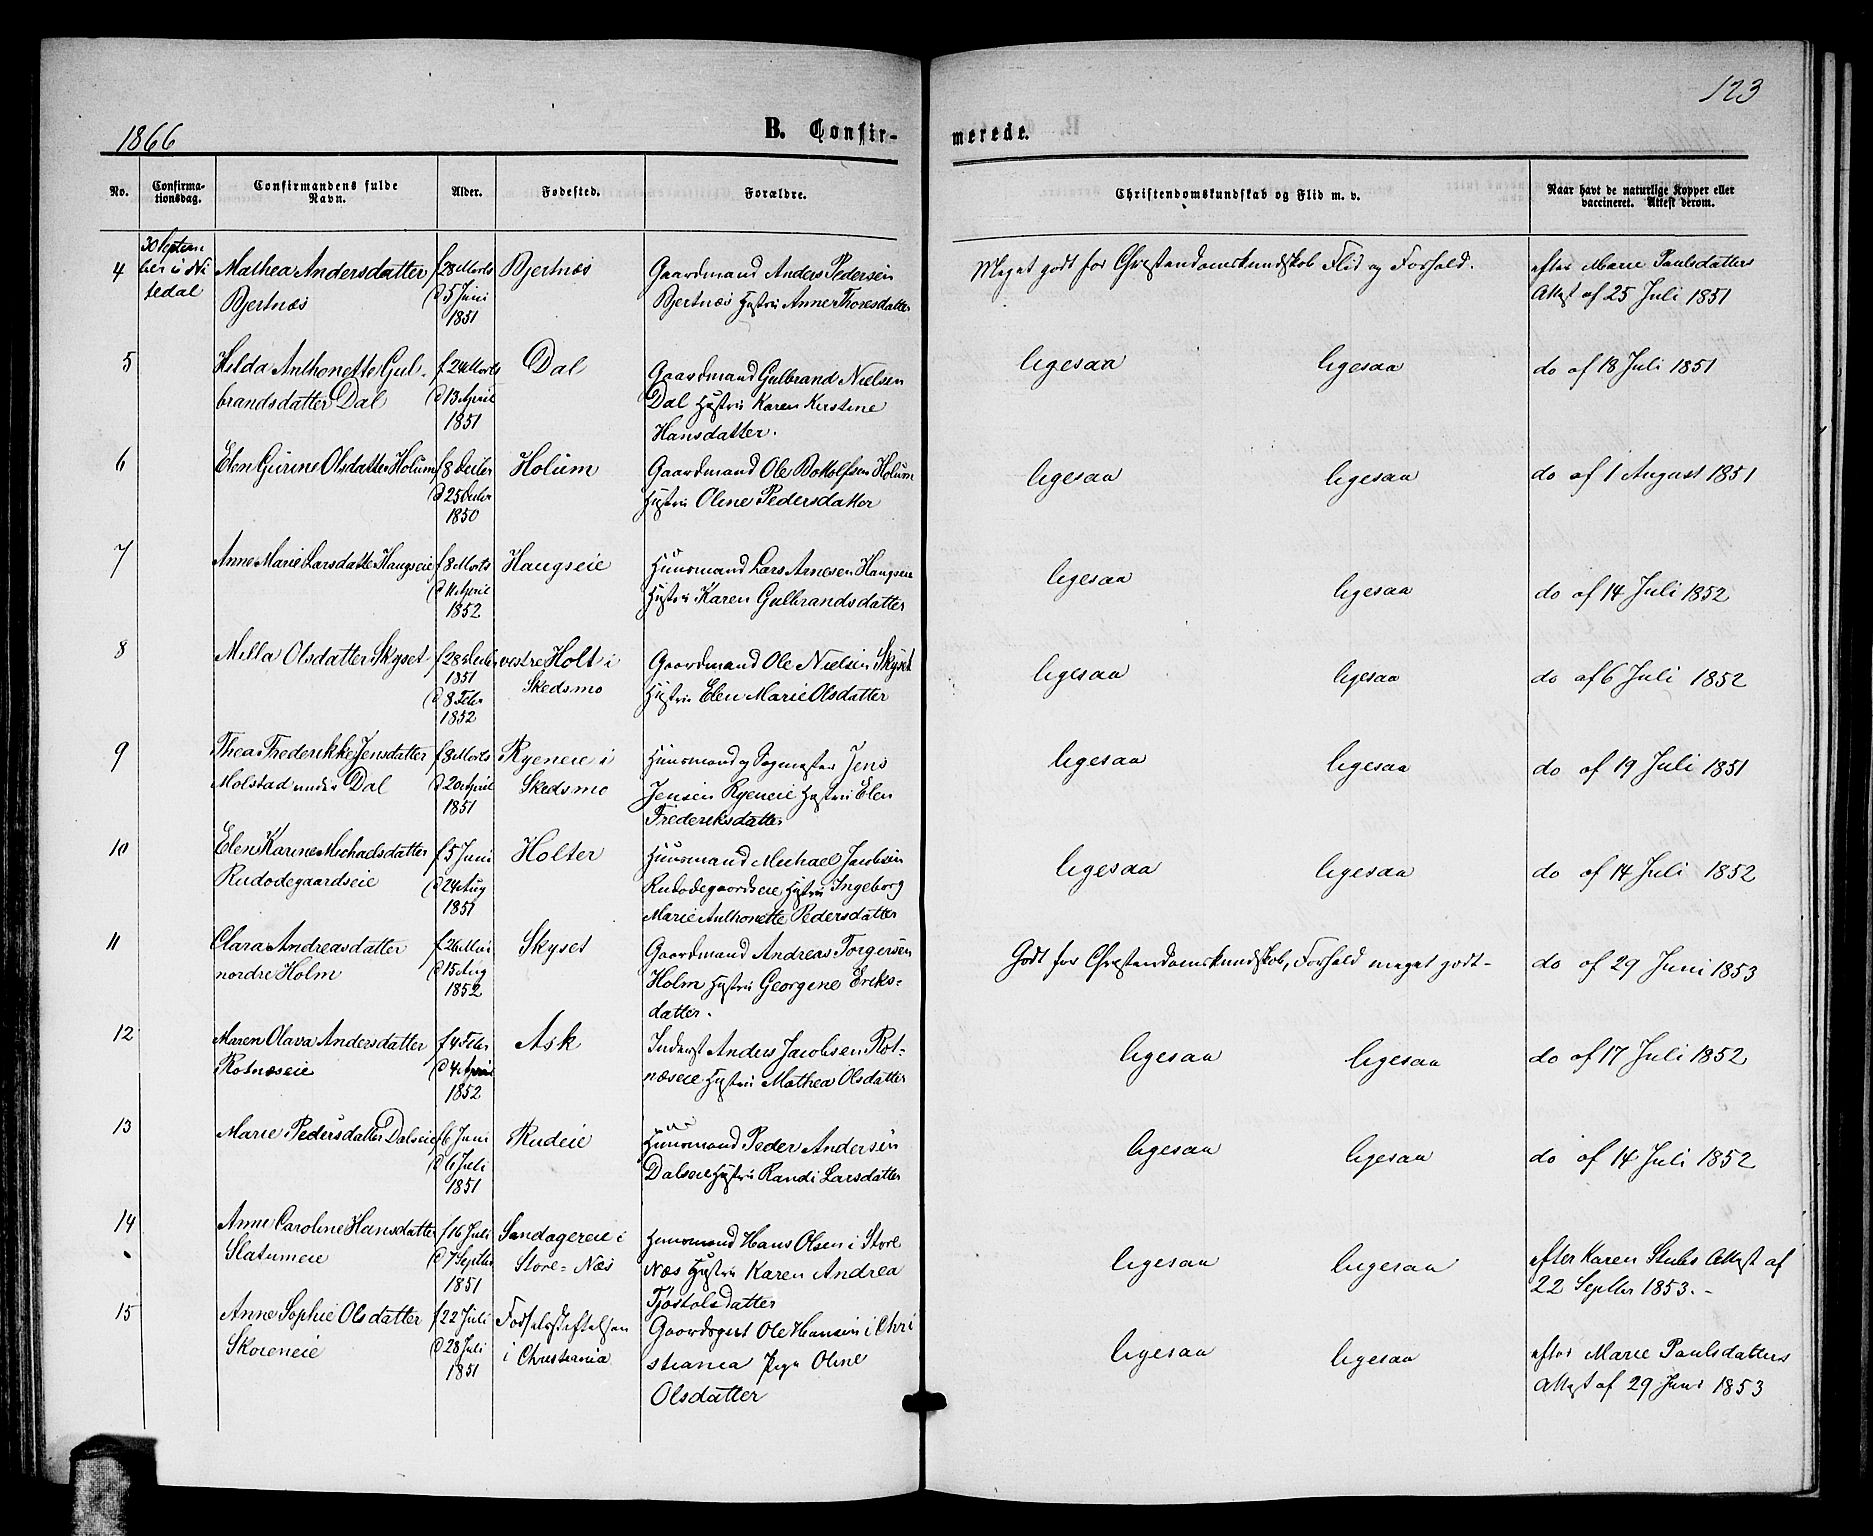 123
1866
B. Confir-
merede.
No.
Confirma-
tionsdag.
Confirmandens fulde
Navn.
Alder.
Fødested.
Forældre.
Christendomskundskab og Flid m. v.
Naar havt de naturlige Kopper eller
vaccineret. Attest derom.
30 Septem-
ber i Ni
tedal
4
Mathea Andersdatter
Bjertnæs
f 28 Marts
d 5 Juni
1851
Bjertnæs
Gaardmand Anders Pedersen
Bjertnæs Hustru Anne Thoresdatter
Meget godt for Christendomskundskab Flid og Forhold.
efter Marie Paulsdatters
Attest af 25 Juli 1851
5
Hilda Anthonette Gul-
brandsdatter Dal
f 24 Marts
d 13 April
1851
Dal
Gaardmand Gulbrand Nielsen
Dal Hustru Karen Kirstine
Hansdatter.
ligesaa
ligesaa
do af 18 Juli 1851
6
Elen Gurine Olsdatter Holum
f 8 Decber
d 25 Decbr
1850
Holum
Gaardmand Ole Bottolfsen Holum
Hustru Oline Pedersdatter
ligesaa
ligesaa
do af 1 August 1851
7
Anne Marie Larsdatter Haugseie
f 8 Marts
d 11 April
1852
Haugseie
Huusmand Lars Arnesen Haugseie
Hustru Karen Gulbrandsdatter
ligesaa
ligesaa
do af 14 Juli 1852
8
Milla Olsdatter Skyset
f 28 Decbr
1851
d 8 Febr
1852
vestre Holt i
Skedsmo
Gaardmand Ole Nielsen Skyset
Hustru Elen Marie Olsdatter
ligesaa
ligesaa
do af 6 Juli 1852
9
Thea Frederikke Jensdatter
Molstad under Dal
f 8 Marts
d 20 April
1851
Ryeneie i
Skedsmo
Huusmand og Sagmester Jens
Jensen Ryeneie Hustru Elen
Frederiksdatter
ligesaa
ligesaa
do af 19 Juli 1851
10
Elen Karine Michaelsdatter
Rudodegaardseie
f 5 Juni
d 24 Aug
1851
Holter
Huusmand Michael Jacobsen
Rudodegaardseie Hustru Ingeborg
Marie Anthonette Pedersdatter
ligesaa
ligesaa
do af 14 Juli 1852
11
Clara Andreasdatter
nordre Holm
f 26 Mai
d 15 Aug
1852
Skyset
Gaardmand Andreas Torgersen
Holm Hustru Georgine Eriks-
datter.
Godt for Christendomskundskab, Forhold meget godt-
do af 29 Juni 1853
12
Maren Olava Andersdatter
Rotnæseie
f 4 Febr
d 4 April
1852
Ask
Inderst Anders Jacobsen Rot-
næseie Hustru Mathea Olsdatter
ligesaa
ligesaa
do af 17 Juli 1852
13
Marie Pedersdatter Dalseie
f 6 Juni
d 6 Juli
1851
Rudeie
Huusmand Peder Andersen
Dalseie Hustru Randi Larsdatter
ligesaa
ligesaa
do af 14 Juli 1852
14
Anne Caroline Hansdatter
Slatumeie
f 16 Juli
d 7 Septbr
1851
Sandagereie i
Store-Næs
Huusmand Hans Olsen i Store
Næs Hustru Karen Andrea
Tjostolsdatter
ligesaa
ligesaa
efter Karen Stubs Attest af
22 Septber 1853.-
15
Anne Sophie Olsdatter
Skøieneie
f 22 Juli
d 28 Juli
1851
Fødselsstiftelsen
i Christiania
Gaardsgut Ole Hansen i Chri
stiania Pige Oline
Olsdatter
ligesaa
ligesaa
efter Marie Paulsdatters
Attest af 29 Juni 1853